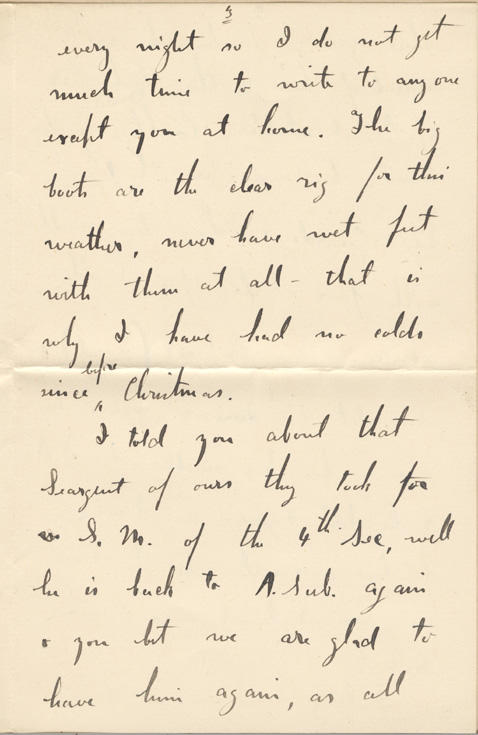 3
every night so I do not get
much time to write to any one
except you at home. The big
boots are the clear rig for this
weather, never have wet feet
with them at all - that is
why I have had no colds
since before Christmas.
I told you about that
Seargent of ours they took for
S. M. of the 4th Sec, well
he is back to A. Sub. again
& you bet we are glad to
have him again, as all